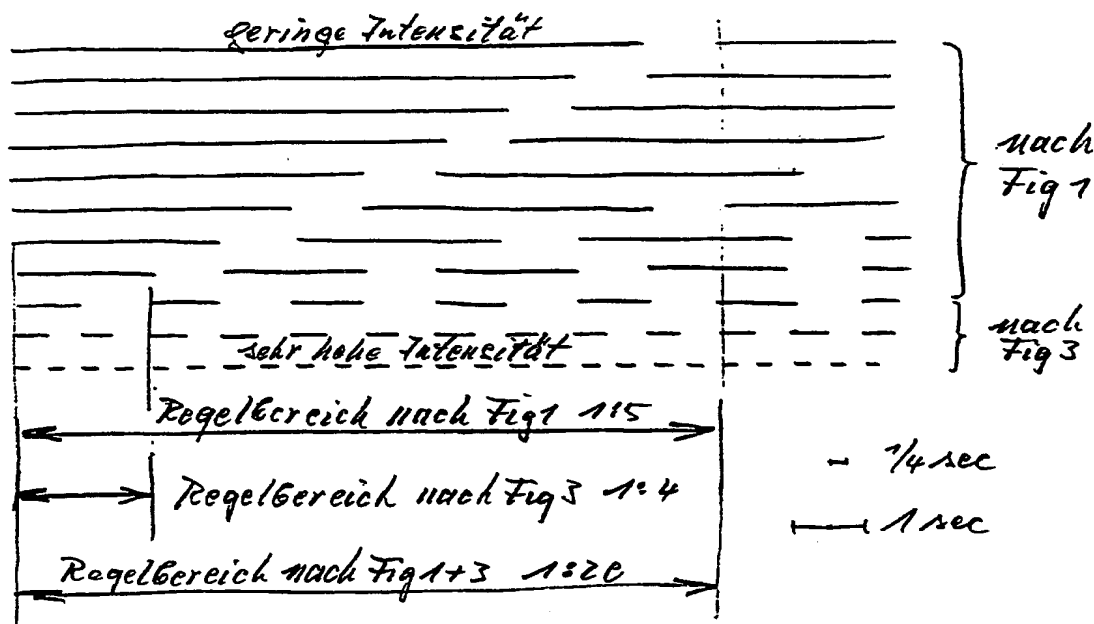 geringe Intensität
nach
Fig 1
nach
Fig 3
sehr hohe Intensität
Regelbereich nach Fig 1 1:5
Regelbereich nach Fig 3 1:4
Regelbereich nach Fig 1+3 1:20
1/4 sec
1 sec